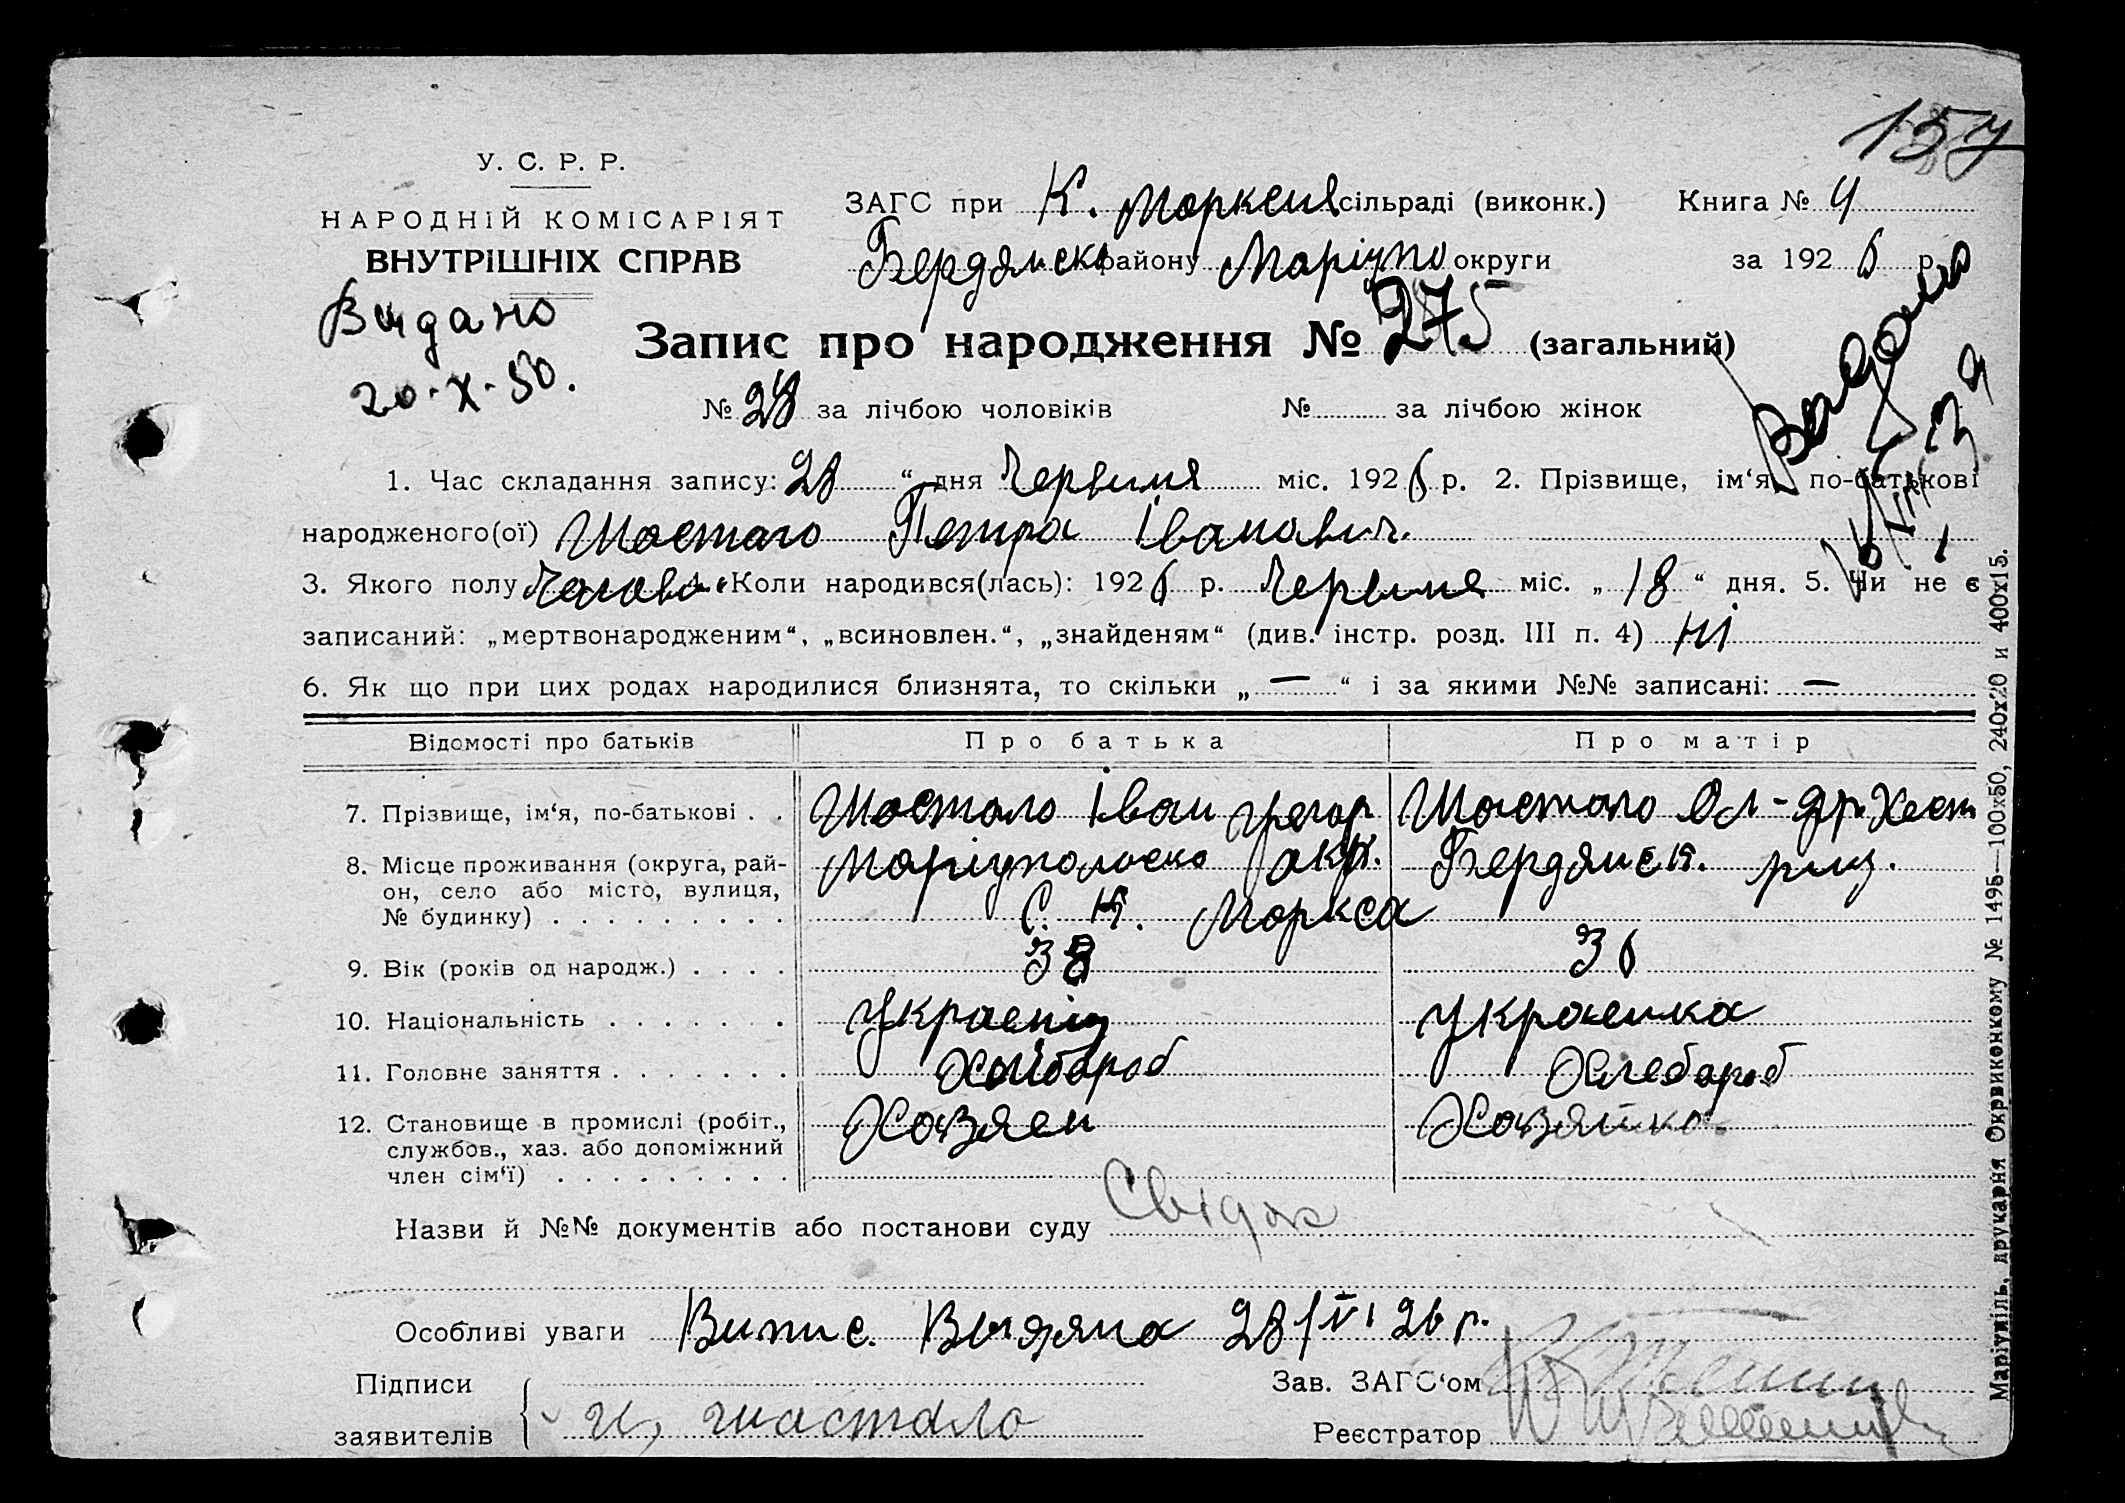 157
У. С. Р. Р.
НАРОДНІЙ КОМІСАРІЯТ
ВНУТРІШНІХ СПРАВ
Видано
20-X-50.
ЗАГС при К. Маркса сільраді (виконк.) Книга № 4
Бердянск району Маріупо округи за 1926 р.
Запис про народження № 275 (загальний)
№ 28 за лічбою чоловіків № за лічбою жінок
Видано
1. Час складання запису: 28 “ дня Червня міс. 1926 р. 2. Прізвище, ім‘я, по-батькові
народженого(ої) Шостало Петро Іванович.
3. Якого полу Чолові 4. Коли народився(лась): 1926 р. Червня міс. „ 18 “ дня. 5. Чи не є
записаний: „мертвонародженим“, „всиновлен.“, „знайденям“ (див. інстр. розд. III п. 4) Ні
6. Як що при цих родах народилися близнята, то скільки „ — “ і за якими №№ записані: —
Відомості про батьків Про батька Про матір
7. Прізвище, ім‘я, по-батькові . . Шостало Іван Грегор Шостало Ол-др.
8. Місце проживання (округа, рай- Маріупольска окр. Бердянск. рай.
он, село або місто, вулиця,
№ будинку) . . . . . . . . . . С. К. Маркса
9. Вік (років од народж.) . . . . 38 36
10. Національність . . . . . . . Украениц Украенка
11. Головне заняття . . . . . . . Хлібароб Хлебароб
12. Становище в промислі (робіт., Хозяен Хозяйка
службов., хаз. або допоміжний
член сім‘ї) . . . . . . . . .
Назви й №№ документів або постанови суду Свідок
Особливі уваги Випис. Выдана 28/VI 26 р.
Підписи Зав. ЗАГС‘ом
заявителів И, шастало Реєстратор
Маріупіль, друкарня Окрвиконкому № 1495—100х50, 240х20 и 400х15.